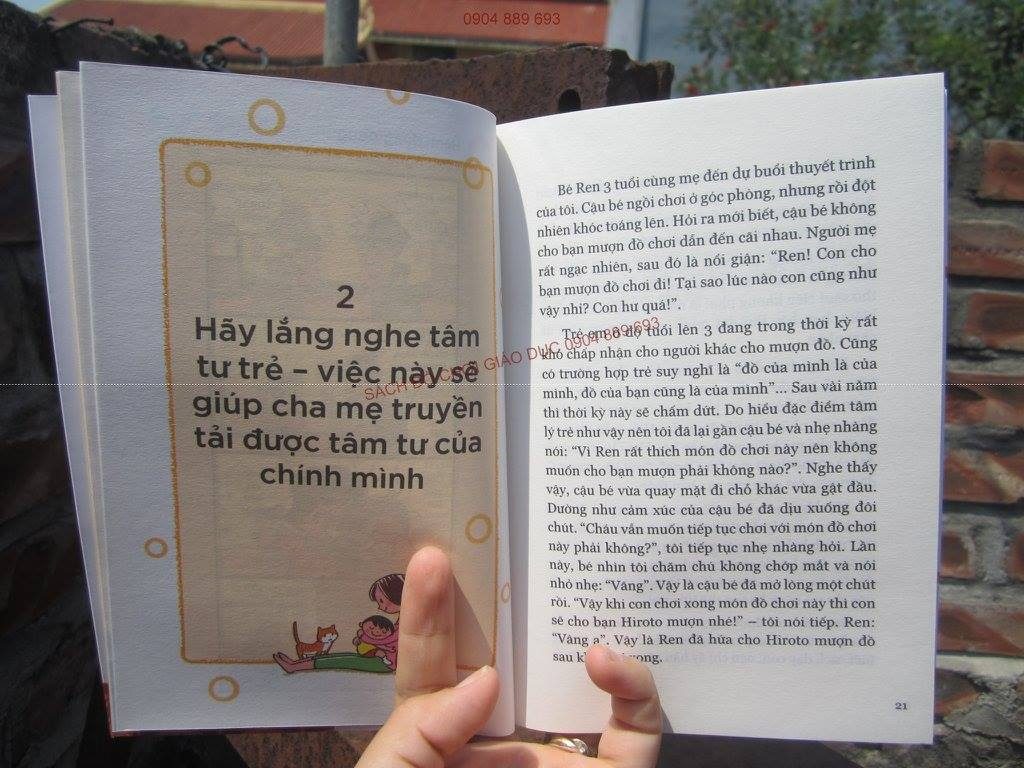 0904 889 693
2
Hãy lắng nghe tâm
tư trẻ – việc này sẽ
giúp cha mẹ truyền
tải được tâm tư của
chính mình
SÁCH ĐỒ CHƠI GIÁO DỤC 0904 889 693
Bé Ren 3 tuổi cùng mẹ đến dự buổi thuyết trình
của tôi. Cậu bé ngồi chơi ở góc phòng, nhưng rồi đột
nhiên khóc toáng lên. Hỏi ra mới biết, cậu bé không
cho bạn mượn đồ chơi dẫn đến cãi nhau. Người mẹ
rất ngạc nhiên, sau đó là nổi giận: “Ren! Con cho
bạn mượn đồ chơi đi! Tại sao lúc nào con cũng như
vậy nhỉ? Con hư quá!”.
Trẻ em ở độ tuổi lên 3 đang trong thời kỳ rất
khó chấp nhận cho người khác cho mượn đồ. Cũng
có trường hợp trẻ suy nghĩ là “đồ của mình là của
mình, đồ của bạn cũng là của mình”... Sau vài năm
thì thời kỳ này sẽ chấm dứt. Do hiểu đặc điểm tâm
lý trẻ như vậy nên tôi đã lại gần cậu bé và nhẹ nhàng
nói: “Vì Ren rất thích món đồ chơi này nên không
muốn cho bạn mượn phải không nào?”. Nghe thấy
vậy, cậu bé vừa quay mặt đi chỗ khác vừa gật đầu.
Dường như cảm xúc của cậu bé đã dịu xuống đôi
chút. “Cháu vẫn muốn tiếp tục chơi với món đồ chơi
này phải không?”, tôi tiếp tục nhẹ nhàng hỏi. Lần
này, bé nhìn tôi chăm chú không chớp mắt và nói
nhỏ nhẹ: “Vâng”. Vậy là cậu bé đã mở lòng một chút
rồi. “Vậy khi con chơi xong món đồ chơi này thì con
sẽ cho bạn Hiroto mượn nhé!” – tôi nói tiếp. Ren:
“Vâng ạ”. Vậy là Ren đã hứa cho Hiroto mượn đồ
sau xong.
21